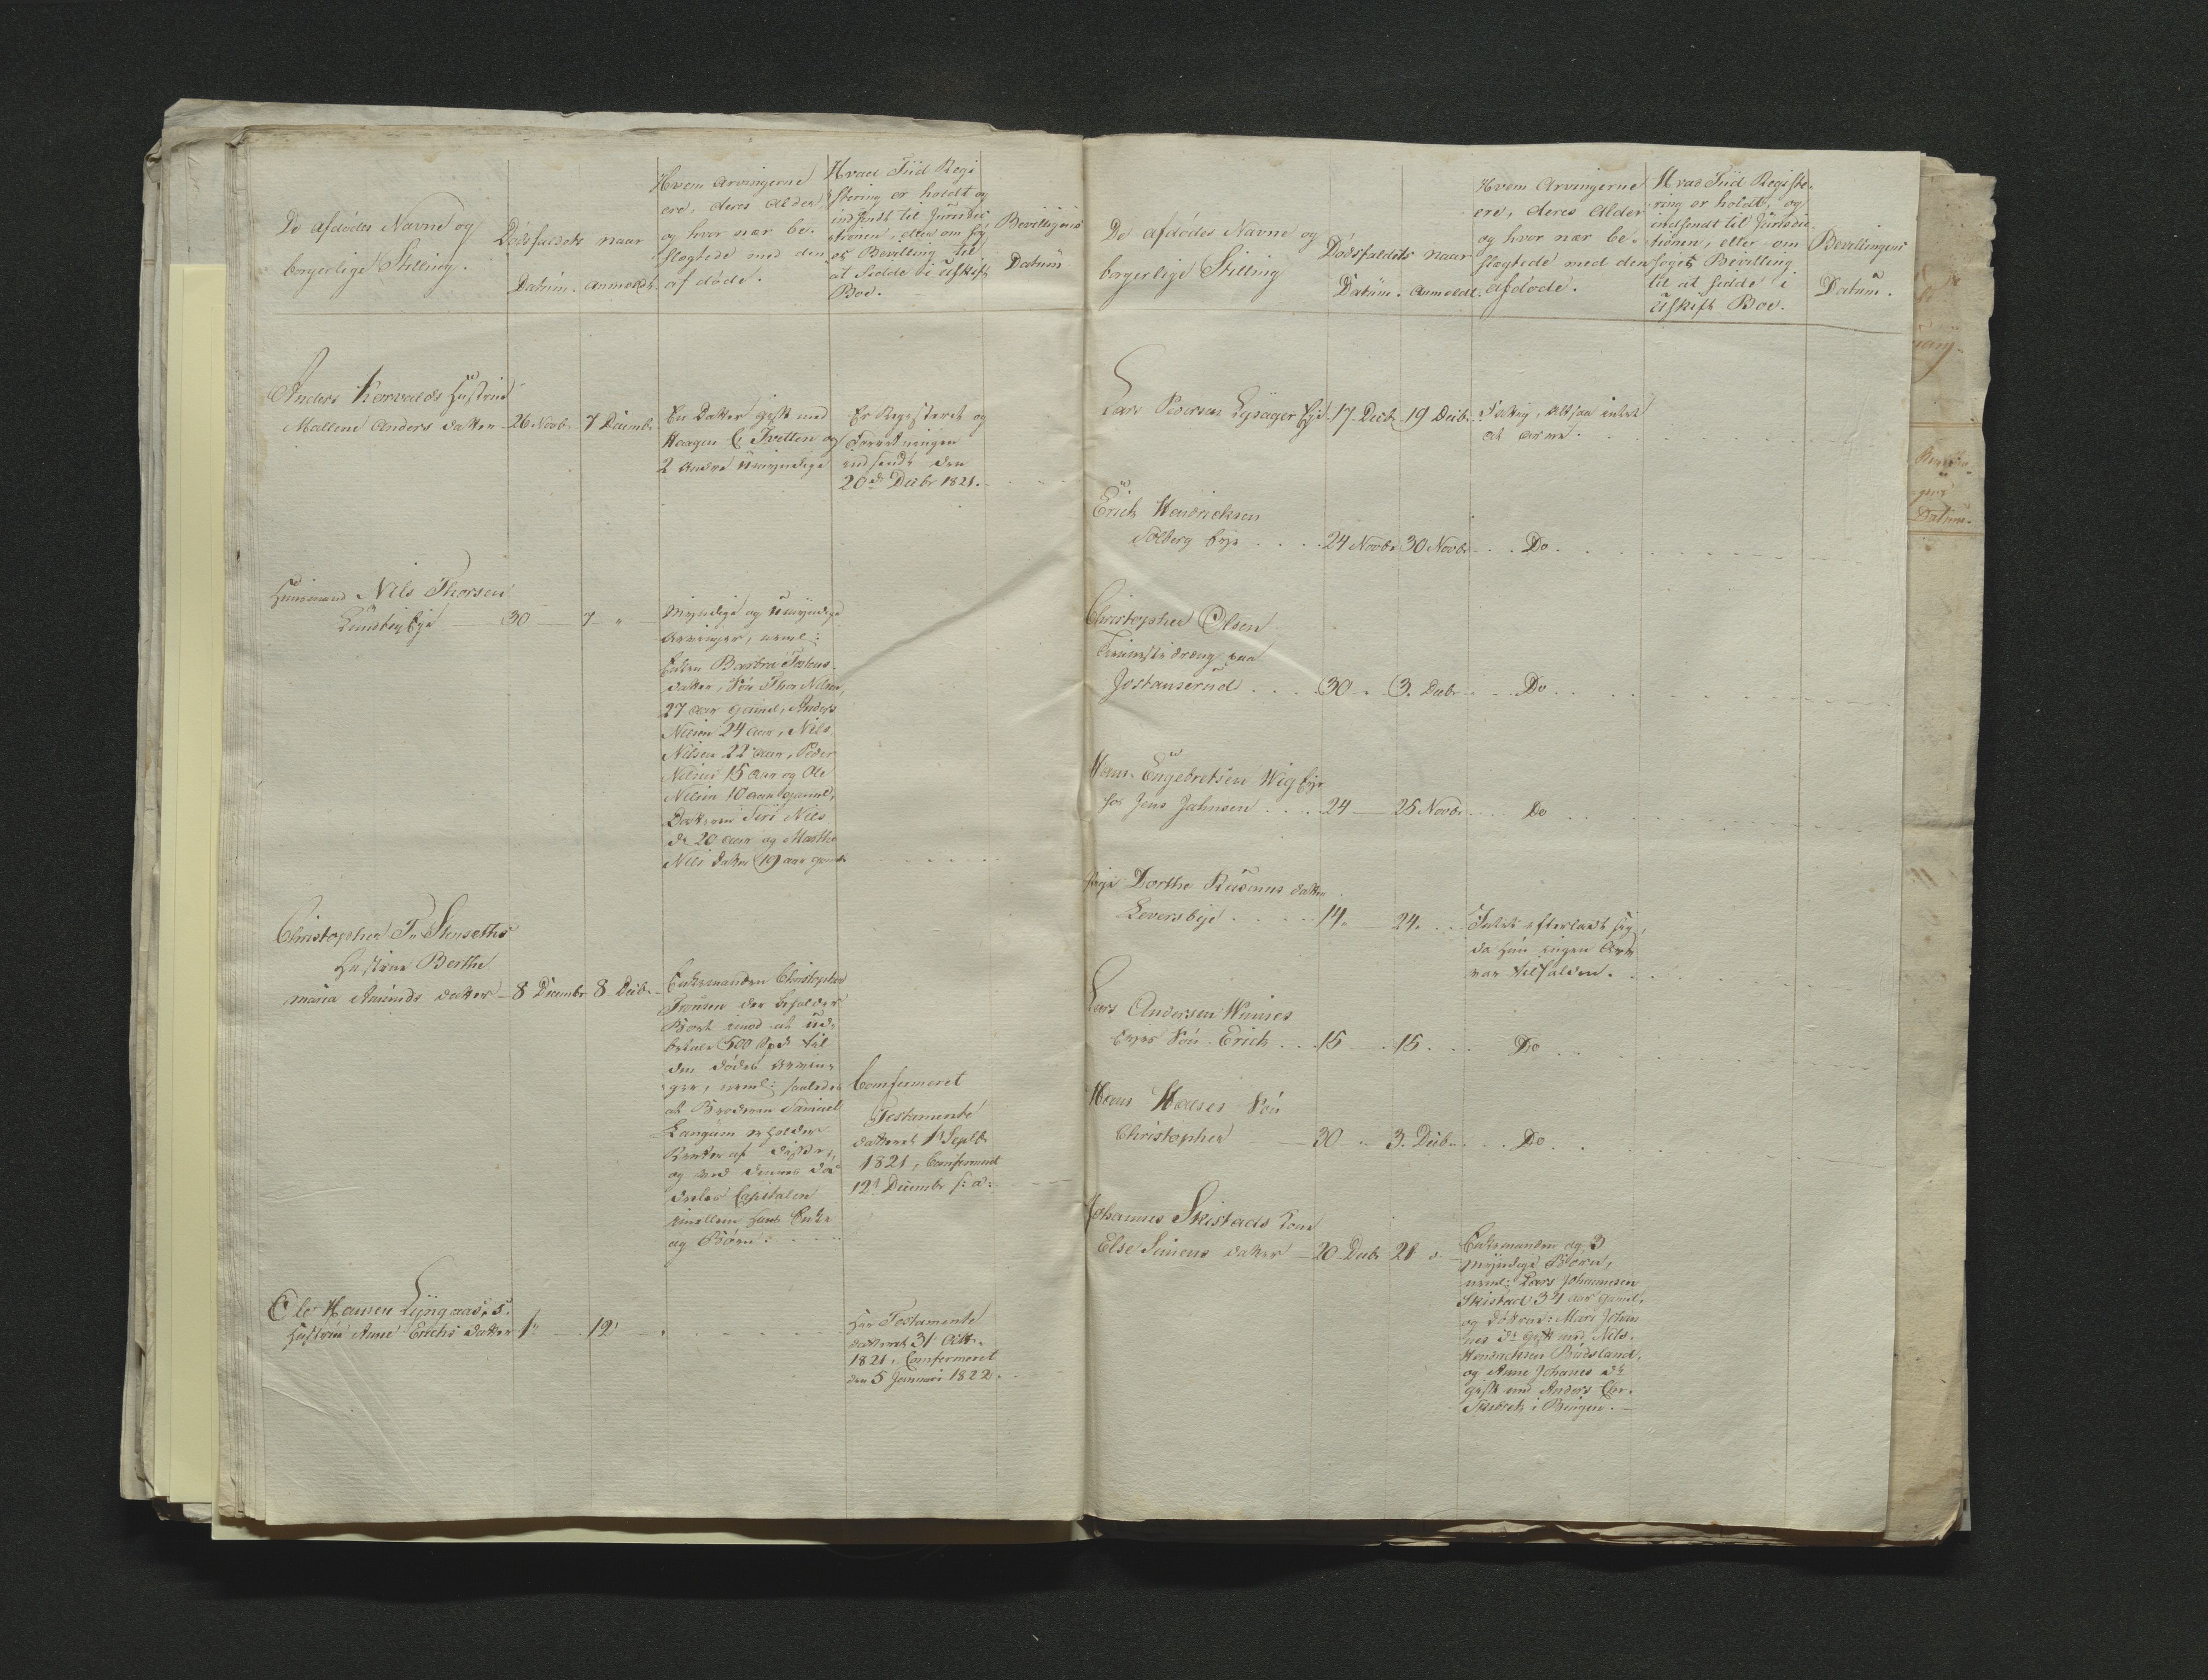 De afdødes Navne og
borgerlige Stilling.
Dødsfaldets
Datum.
naar
anmeldt.
Hvem Arvingerne
ere, deres Alder
og hvor nær be-
slægtede med den
afdøde.
Hvad Tiid Regi
strering er holdt og
indsendt til Jurisdic
tionen, eller om søg
es Bevilling til
at sidde i uskift
Boe.
Bevillingens
Datum
Anders Korvalds Hustrue
Mallene Anders datter 26 Novb. 7 Decemb.
En Datter gift med
Haagen C. Tvetten og
2 andre Umyndige
Er Registeret og
Forretningen
indsendt den
20de Decbr 1821.
Huusmand Nils Thorsen
Lundbyeje 30 7 "
Myndige og Umyndige
Arvinger, neml:
Enken Barbra
datter, Søn Thor Nilsen,
27 aar gaml, Anders
Nilsen 24 aar, Nils
Nilsen 22 aar, Peder
Nilsen 15 aar og Ole
Nilsen 10 aar gaml,
Døttrene Siri Nils
dr 20 aar og Marthe
Nils datter 19 aar gaml.
Christopher Fr. Stenseths
Hustrue Berthe
Maria Amunds datter 8 Decembr 8 Decbr.
Enkemanden Christopher
Fransen der beholder
Boet imod at ud-
betale 500 Spd til
den dødes Arvin-
ger, neml: saaledes
at Broderen Samuel
Langum erholder
Renten af disse,
og ved dennes død
deeles Capitalen
imellem hans Enke
og Børn.
Confirmeret
Testamente
datteret 1. Septb
1821, Confirmeret
12. Decembr s: a:
Ole Hansen Lyngaas's
Hustrue Anne Erichs datter 1. 12
Har Testamente
datteret 31. Octb.
1821. Confirmeret
den 5 Januari 1822.
De afdødes Navne og
borgerlige Stilling
Dødsfaldets
Datum.
naar
Anmeldt.
Hvem Arvingerne
ere, deres Alder
og hvor nær be-
slægtede med den
Afdøde.
Hvad Tiid Registe-
ring er holdt, og
indsendt til Jurisdic
tionen, eller om
søgt Bevilling
til at sidde i
uskift Boe.
Bevillingens
Datum.
Lars Pedersen Lysager Eje 17 Decb. 19 Decb. Fattig, altsaa intet
at arve.
Erich Hendricksen
Solberg Eje 24 Novbr 30 Novbr Do.
Christopher Olsen
Tienistedreng paa
Jostanserud 30 3. Decbr Do.
Hans Engebretsen Wig Eje
hos Jens Johnsen 24 25 Novbr Do
Pige Dorthe Rasmus datter
Loversbeje 14. 24. Intet efterladt sig,
da hun ingen Arv
var tilfalden.
Lars Andersen Humes
Ejes Søn Erich 15 15 Do
Hans Halses Søn
Christopher 30 3. Decbr. Do
Johannes Skistads Kone
Else Simens datter 20 Decbr 21
Enkemanden og 3
myndige Børn,
neml: Lars Johannesen
Skistad 34 aar gaml,
og døttrene: Mari Johan
nes dr gift med Nils
Hendrichsen
og Anne Johannes dr
gift med Anders Chr.
i Bergen.
Datum.